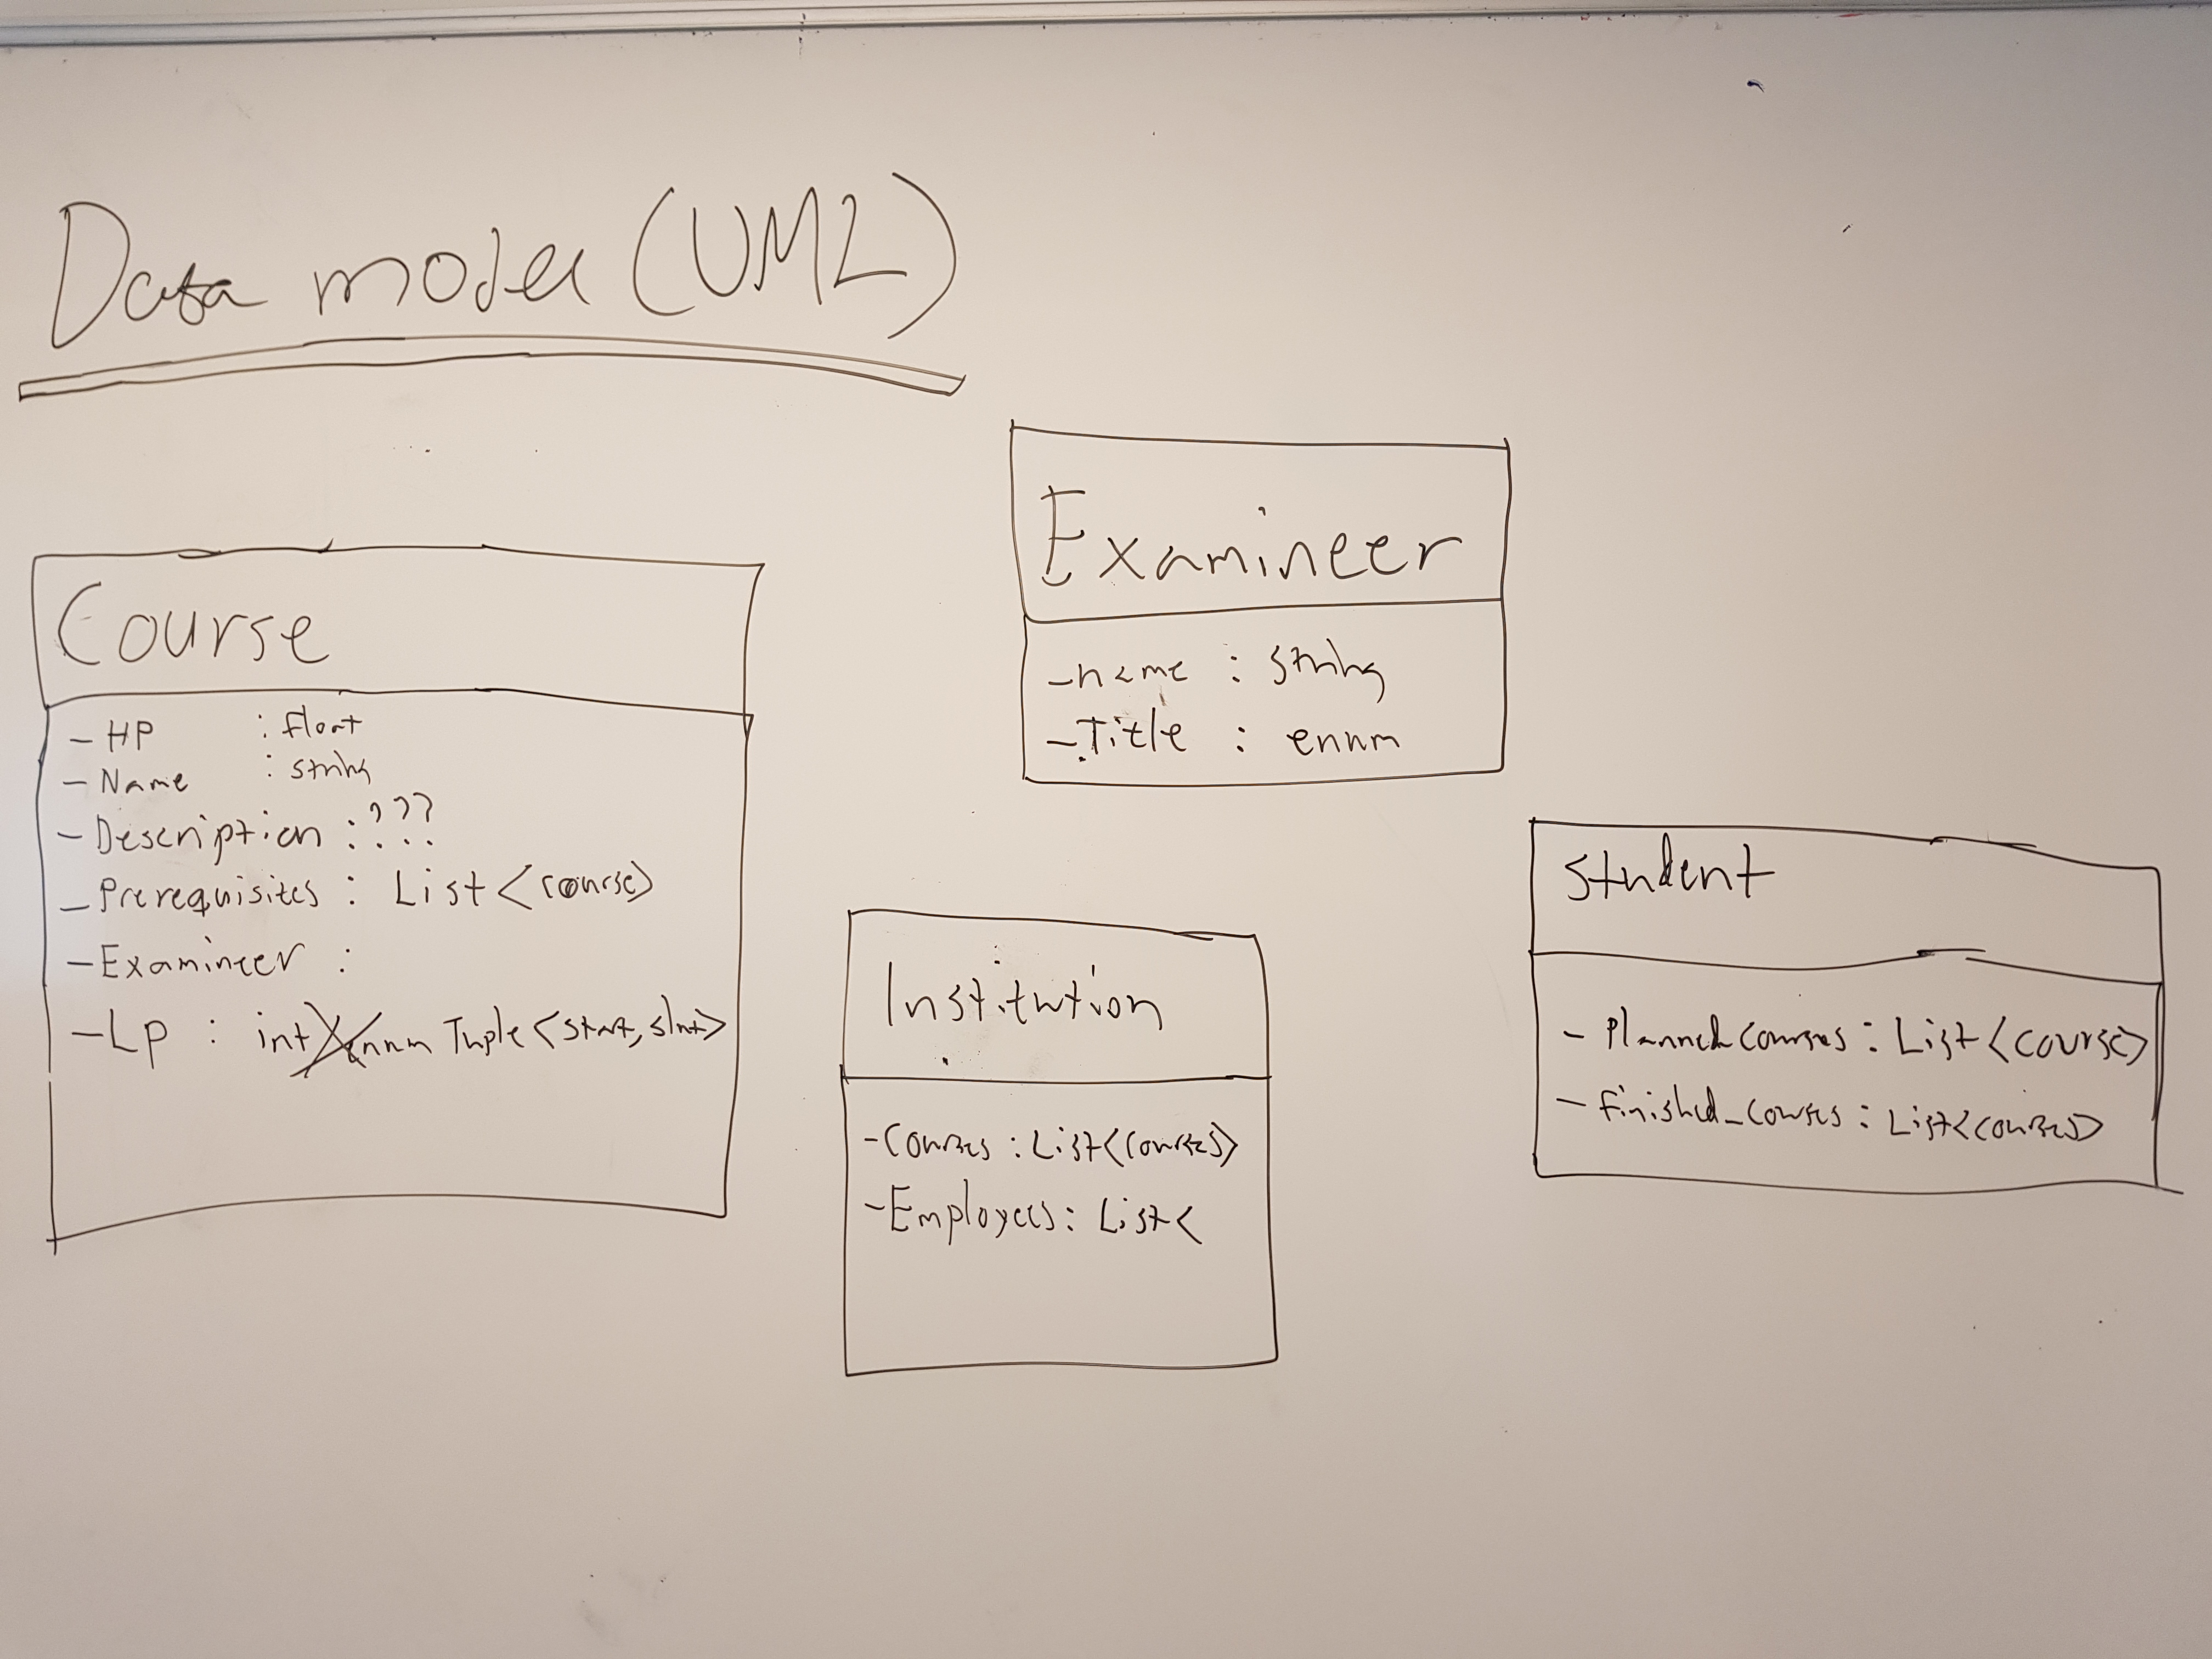 Data model (UML)
Course
- HP : float
- Name : string
- Description : ???
- Prerequisites : List <course>
- Examineer :
- Lp : int enum Tuple <start, slut>
Examineer
- name : string
- Title : enum
Institution
- Courses : List <courses>
- Employees : List <
Student
- Planned courses : List <course>
- finished_courses : List <courses>